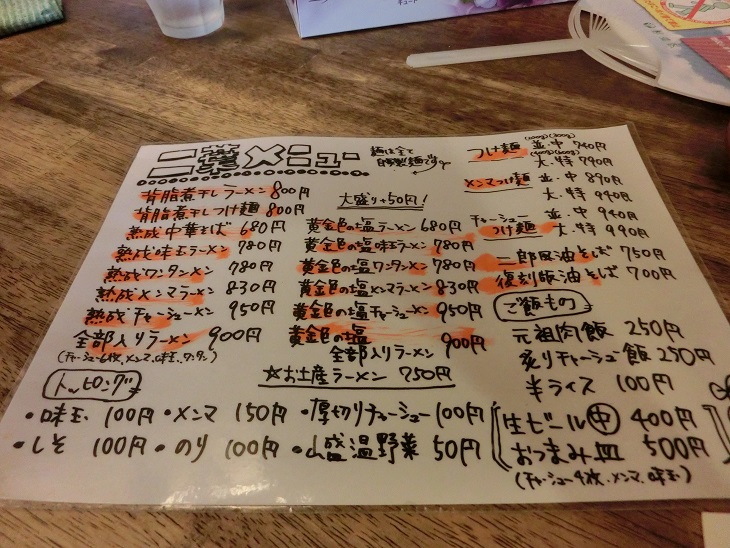 二葉メニュー
麺は全て
自家製麺です。
背脂煮干しラーメン 800円
背脂煮干しつけ麺 800円
熟成中華そば 680円
熟成味玉ラーメン 780円
熟成ワンタンメン 780円
熟成メンマラーメン 830円
熟成チャーシューメン 950円
全部入りラーメン 900円
(チャーシュー6枚、メンマ、味玉、ワンタン)
大盛り+50円!
黄金色の塩ラーメン 680円
黄金色の塩味玉ラーメン 780円
黄金色の塩ワンタンメン 780円
黄金色の塩メンマラーメン 830円
黄金色の塩チャーシューメン 950円
黄金色の塩
全部入りラーメン 900円
☆お土産ラーメン 750円
つけ麺 並・中 740円
大・特 790円
メンマつけ麺 並・中 890円
大・特 940円
チャーシュー
つけ麺 並・中 940円
大・特 990円
二郎風油そば 750円
復刻版油そば 700円
ご飯もの
元祖肉飯 250円
炙りチャーシュー飯 250円
半ライス 100円
生ビール㊥ 400円
おつまみ皿 500円
(チャーシュー4枚、メンマ、味玉)
トッピング
・味玉 100円 ・メンマ 150円 ・厚切りチャーシュー 100円
・しそ 100円 ・のり 100円 ・山盛温野菜 50円